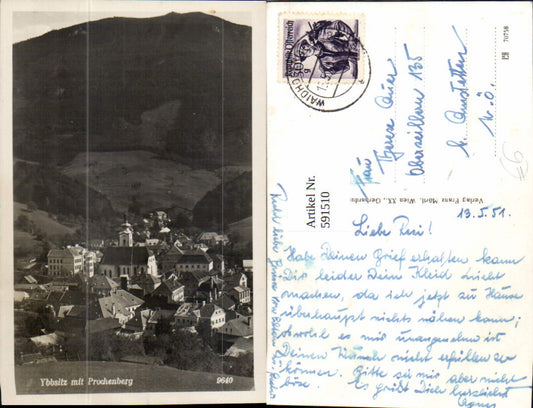 Ybbsitz mit Prochenberg
9640
Republik Österreich
WAIDHO
Frau
Oberzeillern 135
b. Amstetten
N.Ö.
Artikel Nr.
591510
Verlag Franz Mörtl, Wien XX., Gerhardus
70758
13.5.51.
Liebe Resi!
Habe Deinen Brief erhalten kann
Dir leider Dein Kleid nicht
machen, da ich jetzt zu Hause
überhaupt nichts nähen kann;
obwohl es mir unangenehm ist
Deinen Wunsch nicht erfüllen zu
können. Bitte sei mir aber nicht
böse. Es grüßt Dich herzlichst
Agnes
Recht liebe Grüße von